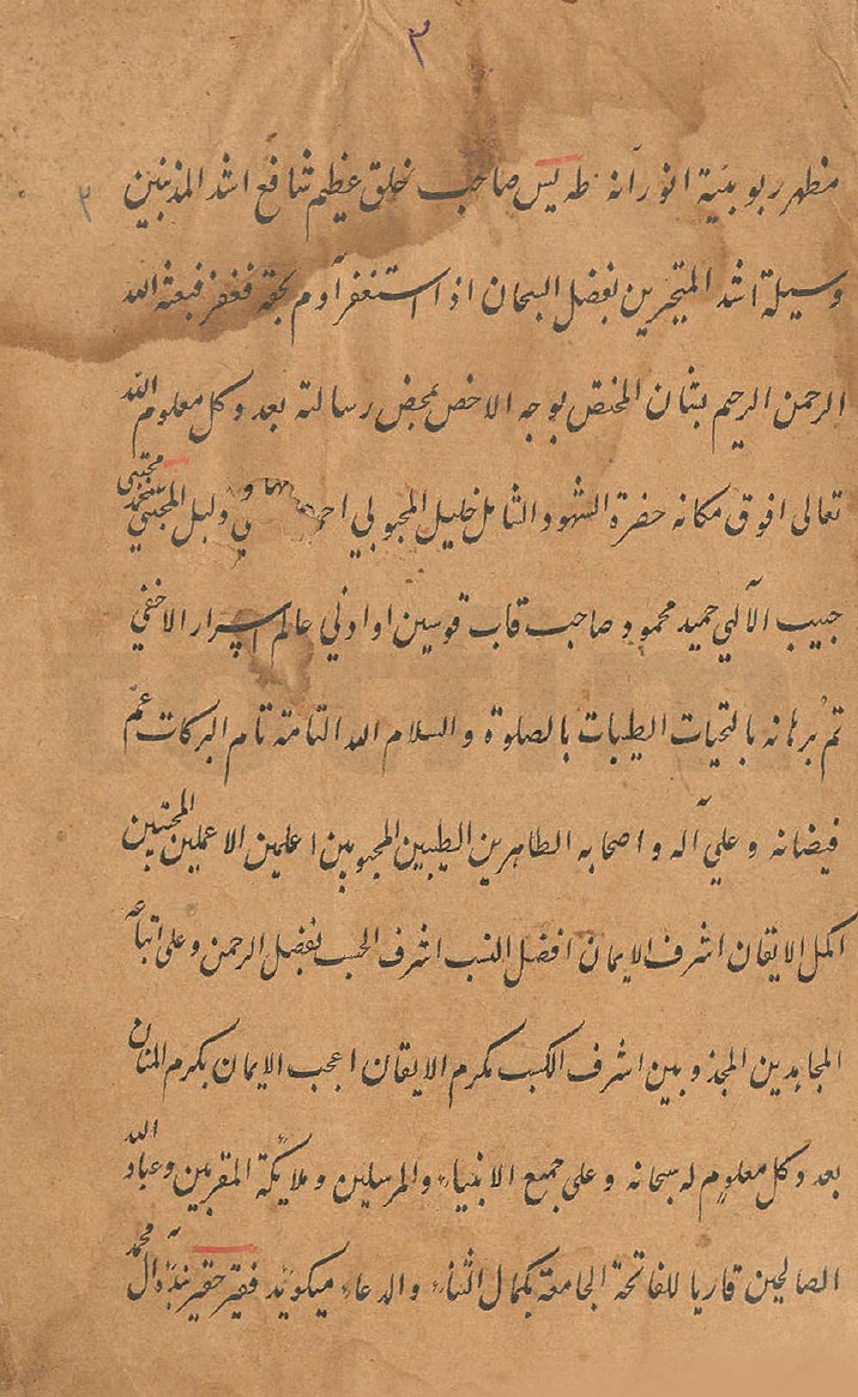 ٣
مظهر ربوبیّة انورانه طه یس صاحب خلق عظیم شافع اشد المذنبین
٢
وسیلة اشد المتحیرین بفضل السبحان اذا استغفر آدم بحقه فغفر فبعثه الله
الرحمن الرحیم بشان المختص بوجه الاخص بمحض رسالته بعدد کل معلوم الله
تعالی افوق مکانه حضرة الشهود الشامل خلیل المحبوبی ولیل المجتبی محمد مجتبی
حبیب الآلهی حمید محمود صاحب قاب قوسین او ادنی عالم اسرار الاخفی
تم برهانه بالتحیات الطیبات بالصلوة والسلام الله التامة تام البرکات عم
فیضانه وعلی آله واصحابه الطاهرین الطیبین المحبوبین اعلمین الاعملین المحبین
اکمل الایقان اشرف الایمان افضل النسب اشرف الحسب بفضل الرحمن وعلی اتباعه
المجاهدین المجذوبین اشرف الکسب مکرم الایقان اعجب الایمان بکرم المنان
بعدد کل معلوم له سبحانه وعلی جمیع الانبیاء والمرسلین وملایکة المقربین وعباد الله
الصالحین قاریا للفاتحة الجامعة بکمال الثناء والدعاء میکوید فقیر حقیر بنده آل محمد